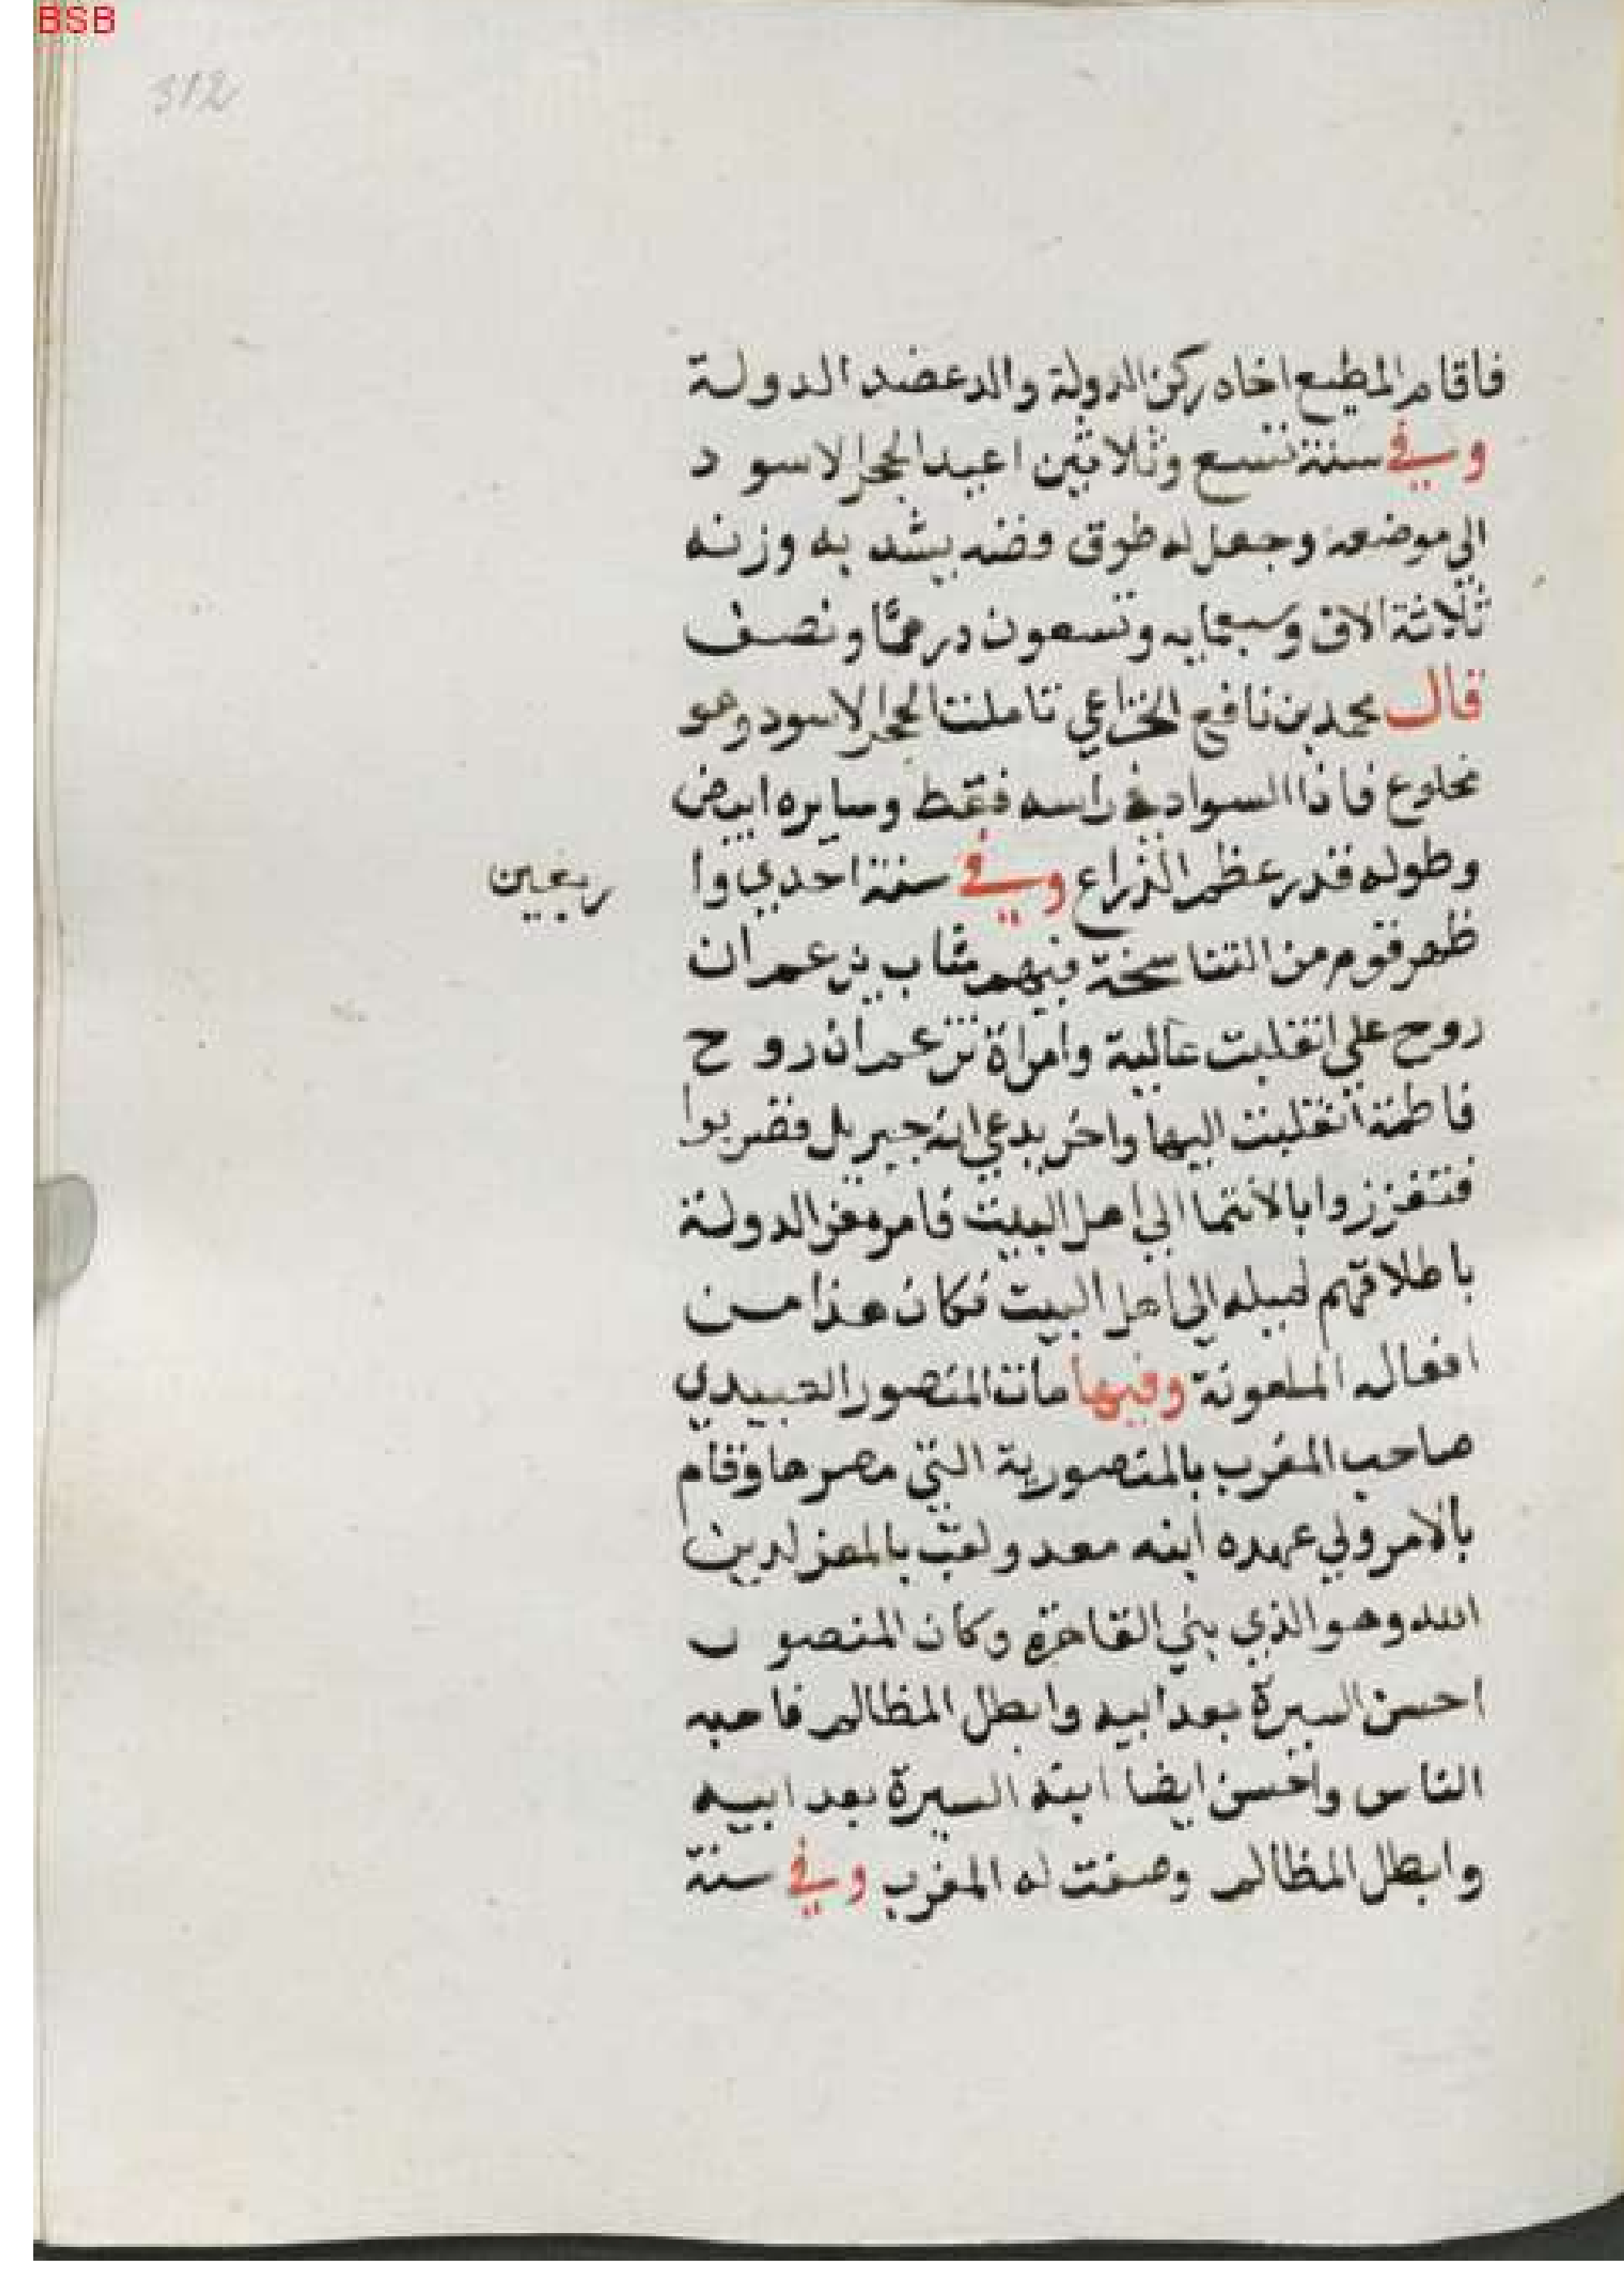 BSB
312
فاقام المطيع اخاه ركن الدولة والد عضد الدولة
وفي سنة تسع وثلاثين اعيد الحجر الاسود
الي موضعه وجعل له طوق فضه يشد به وزنه
ثلاثة الاف وسبعمايه وتسعون درهمًا ونصف
قال محمد بن نافع الخزاعي تاملت الحجر الاسود وهو
مخلوع فاذا السواد في راسه فقط وسايره ابيض
وطوله قدر عظم الذراع وفي سنة احدي وا ربعين
ظهر قوم من التناسخة فيهم شاب يزعم ان
روح علي انتقلت عالية وامراة تزعم ان روح
فاطمة انتقلت اليها واخر يدعي انه جبريل فضربوا
فتعززوا بالانتما الي اهل البيت فامر معز الدولة
باطلاقهم لميله الي اهل البيت فكان هذا من
افعاله الملعونة وفيها مات المنصور العبيدي
صاحب المغرب بالمنصورية التي مصرها وقام
بالامر ولي عهده ابنه معد ولقب بالمعز لدين
الله وهو الذي بني القاهرة وكان المنصور
احسن السيرة بعد ابيه وابطل المظالم فاحبه
الناس واحسن ايضا ابنه السيرة بعد ابيه
وابطل المظالم وصفت له المغرب وفي سنة